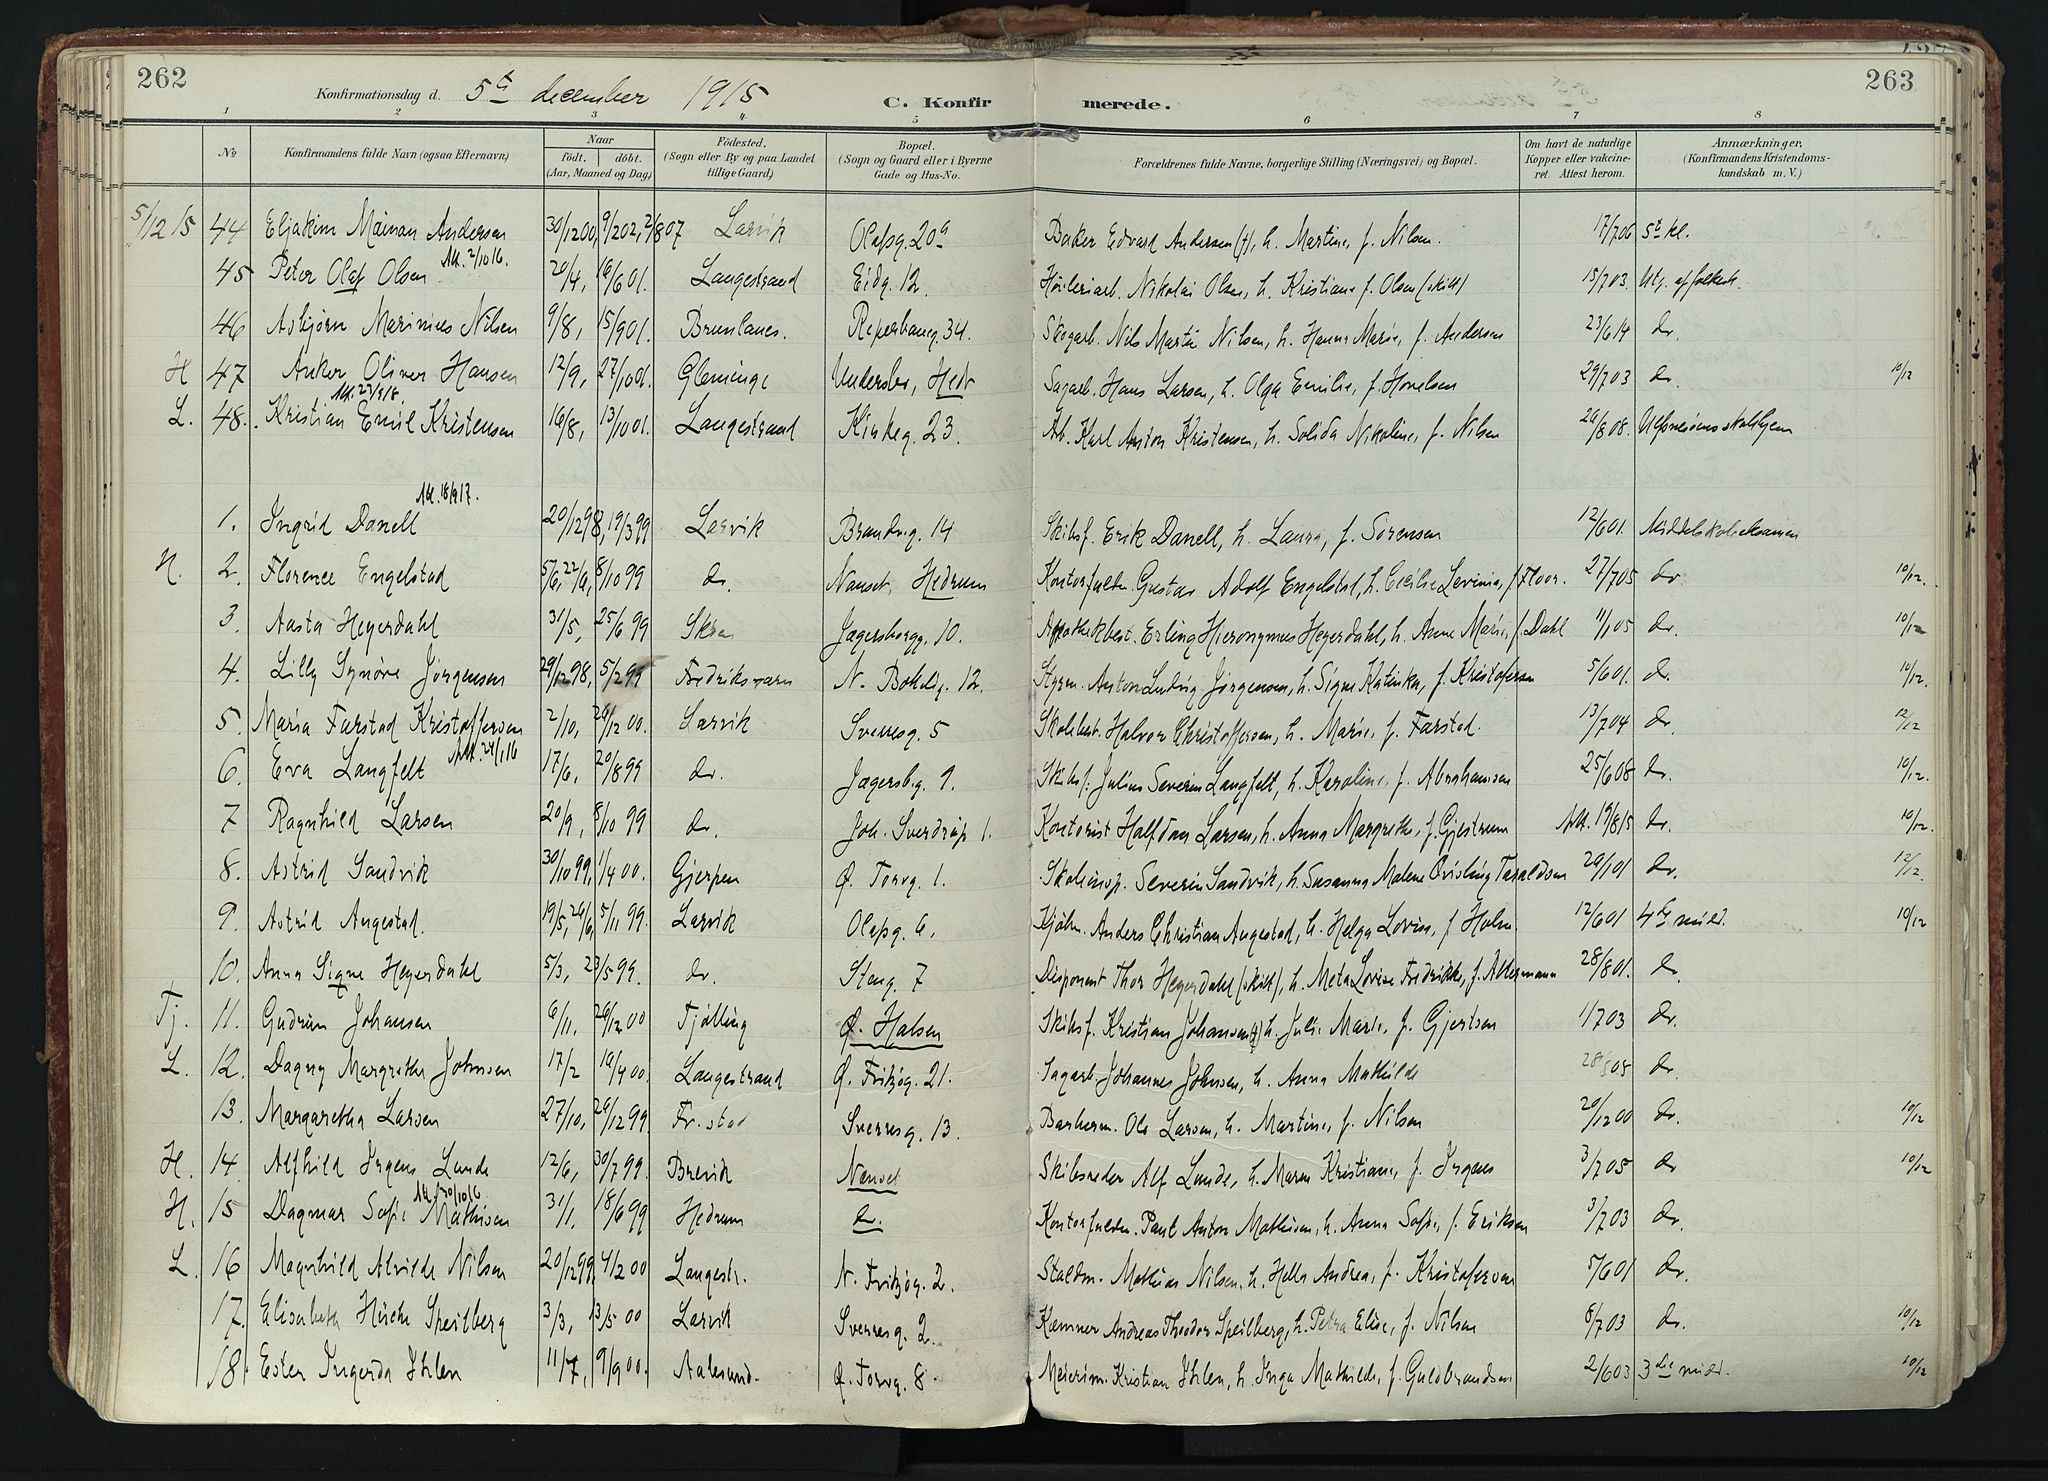 262
Konfirmationsdag d. 5te december 1915
C. Konfir merede.
263
1 2 3 4 5 6 7 8
No
Konfirmandens fulde Navn (ogsaa Efternavn)
Naar
født. døbt.
(Aar, Maaned og Dag)
Födested.
(Sogn eller By og paa Landet
tillige Gaard)
Bopæl.
(Sogn og Gaard eller i Byerne
Gade og Hus-No.
Forældrenes fulde Navne, borgerlige Stilling (Næringsvei) og Bopæl.
Om havt de naturlige
Kopper eller vaccine-
ret. Attest herom.
Anmærkninger,
(Konfirmandens Kristendoms-
kundskab m. V.)
5/12 15 44 Eljakim Mainan Andersen 30/12 00, 9/2 02, 2/8 07 Larvik Olafsg. 20a Baker Edvard Andersen (†), h. Martine, f. Nilsen. 17/7 06 5te kl.
Att. 2/10 16.
45 Peter Olaf Olsen 20/4, 16/6 01. Langestrand Eidg. 12. Høvleriarb. Nikolai Olsen, h. Kristiane f. Olsen (skilt) 15/7 03. Utg. af folkesk.
46 Asbjørn Marinius Nilsen 9/8, 15/9 01. Brunlanes. Reperbaneg. 34. Skogarb. Nils Martin Nilsen, h. Hanna Marie, f. Andersen 23/6 14 do.
H 47 Anker Oliver Hansen 12/9, 27/10 01. Gleminge Undersbo, Hedr Sagarb. Hans Larsen, h. Olga Emilie, f. Hovelsen 29/7 03 do. 10/12
L. 48. Kristian Emil Kristensen 16/8, 13/10 01. Langestrand Kirkeg. 23. Ab. Karl Anton Kristensen, h. Solida Nikoline, f. Nilsen 26/8 08.
Att. 18/9 17.
1. Ingrid Danell 20/12 98, 19/3 99 Larvik Brandvg. 14 Skibsf. Erik Danell, h. Laura, f. Sørensen 12/6 01. Middelskoleeksamen
H. 2. Florence Engelstad 8/10 99 do. Nanset, Hedrum Kontorfuldm. Gustav Adolf Engelstad, h. Cecilie Levinia, f. Floor. 27/7 05 do. 10/12.
3. Aasta Heyerdahl 31/5, 25/6 99 Skien Jægersborgg. 10. Apothekbest. Erling Hieronymus Heyerdahl, h. Anne Marie, f. Dahl 11/1 05 do. 10/12
4. Lilly Synøve Jørgensen 29/12 98, 5/2 99 Fredriksværn N. Bøkelig. 12. Styrm. Anton Ludvig Jørgensen, h. Signe Katinka, f. Kristofersen 5/6 01. do. 10/12.
5. Maria Farstad Kristoffersen 2/10, 26/12 00. Larvik Sverresg. 5 Skolebest. Halvor Christoffersen, h. Marie, f. Farstad. 13/7 04 do. 12/12
Att. 24/1 16
6. Eva Langfelt 17/6, 20/8 99 do. Jægersbg. 9. Skibsf. Julius Severin Langfelt, h. Karoline, f. Abrahamsen 25/6 08 do. 10/12.
7 Ragnhild Larsen 20/9, 8/10 99 do. Joh. Sverdrup 1. Kontorist Halfdan Larsen, h. Anna Margrethe, f. Gjestrum Att. 19/8 15 do. 10/12.
8. Astrid Sandvik 30/10 99, 1/4 00. Gjerpen Ø. Torvg. 1. Skoleinsp. Severin Sandvik, h. Susanna Malene Qvisling Taraldsen 29/1 01 do. 12/12.
9. Astrid Angestad. 19/5, 24/6, 5/11 99. Larvik Olafsg. 6. Kjøbm. Anders Christian Angestad, h. Helga Lovise, f. Holm. 12/6 01 4de midd. 10/12
10. Anna Signe Heyerdahl 5/3, 23/5 99. do. Steng. 7 Disponent Thor Heyerdahl (skilt), h. Meta Lovise Fredrikke, f. Altermann 28/8 01. do
Tj. 11. Gudrun Johansen 6/11, 26/12 00 Tjølling Ø. Halsen Skibsf. Kristian Johansen (†) h. Julie Marie, f. Gjertsen 1/7 03 do.
L. 12. Dagny Margrethe Johnsen 17/2 19/4 00. Langestrand Ø. Fritzøg. 21. Sagarb. Johannes Johnsen, h. Anna Mathilde do.
13. Margaretha Larsen 27/10, 26/12 99. Fr.stad Sverresg. 13. Barberm. Ole Larsen, h. Martine, f. Nilsen 20/12 00 do. 10/12
H. 14. Alfhild Irgens Lunde 12/6, 30/7 99. Brevik Nanset Skibsreder Alf Lunde, h. Maren Kristiane, f. Irgens 3/7 05 do 10/12
Att. 30/10 16
H. 15 Dagmar Sofie Mathisen 31/1, 18/6 99 Hedrum do. Kontorfuldm. Paul Anton Mathisen, h. Anna Sofie, f. Eriksen 3/7 03 do.
L. 16 Magnhild Alvilde Nilsen 20/12 99, 4/2 00 Langestr. N. Fritzøg. 2. Staldm. Mathias Nilsen, h. Hella Andrea, f. Kristofersen 5/6 01 do.
17. Elisabeth Hirche Speilberg 3/3, 13/5 00 Larvik Sverresg. 2. Kæmner Andreas Theodor Speilberg, h. Petra Elise, f. Nilsen 8/7 03 do. 10/12
18. Ester Ingerda Ihlen 11/7, 9/9 00. Aalesund. Ø. Torvg. 8. Meierim. Kristian Ihlen, h. Inga Mathilde, f. Guldbrandsen 2/6 03 3die midd. 10/12